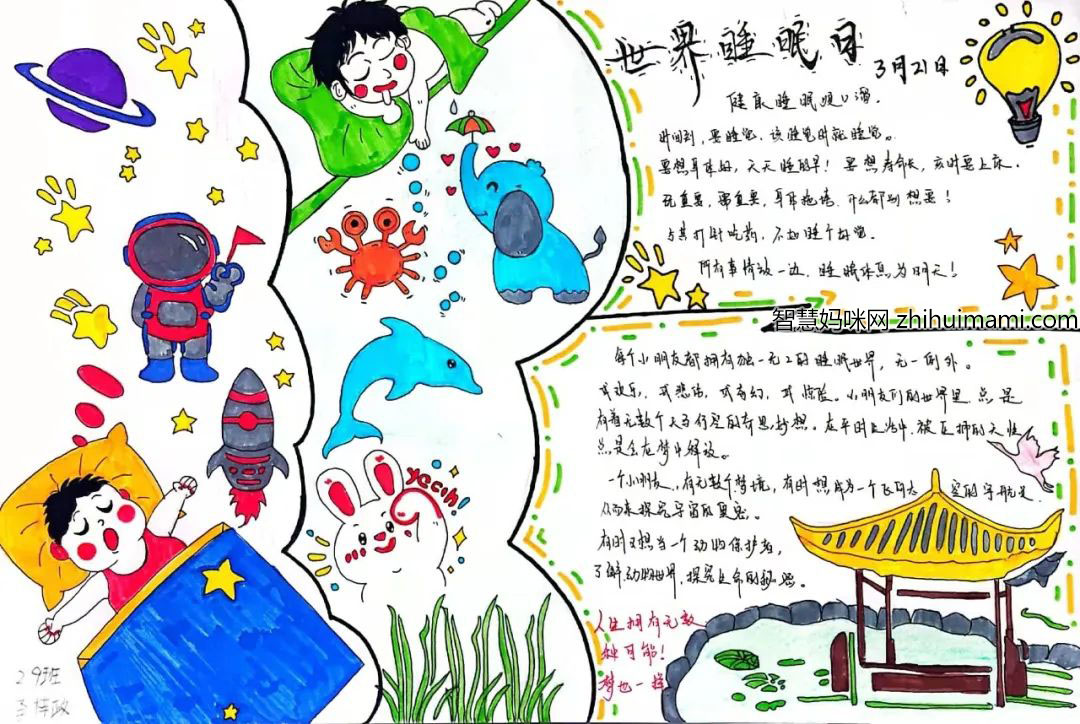 世界睡眠日
3月21日
健康睡眠顺口溜.
时间到,要睡觉,该睡觉时就睡觉。
要想身体好,天天睡的早!要想寿命长,亥时要上床.
玩重要,需重要,身体拖垮,什么都别想要!
与其打针吃药,不如睡个好觉.
所有事情放一边,睡眠休息为明天!
智慧妈咪网 zhihuimami.com
每个小朋友都拥有独一无二的睡眠世界,无一例外。
或欢乐,或悲伤,或奇幻,或惊险。小朋友们的世界里总是
有着无数个天马行空的奇思妙想。在平时生活中,被压抑的天性
总是会在梦中解放。
一个小朋友,有无数个梦境,有时想成为一个飞向太空的宇航员.
从而来探究宇宙的奥秘。
有时又想当一个动物保护者,
了解动物世界,探究生命的秘密。
人生拥有无数
种可能!
梦也一样
yeah!
29班
李梓政